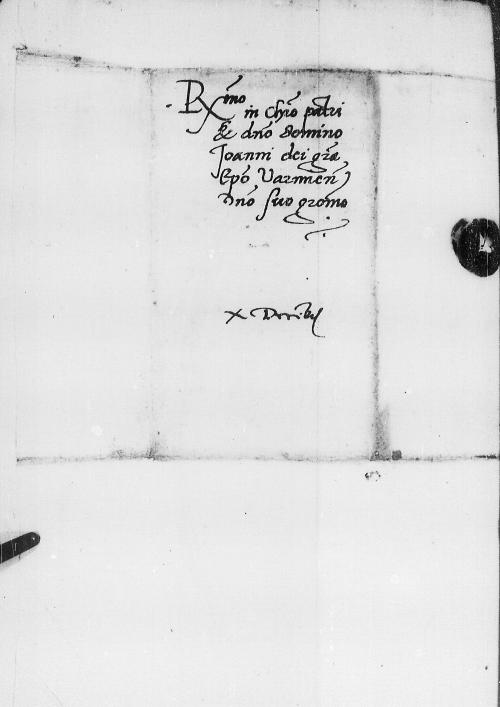 Rx̄mo
in Chr̄o patri
& dn̄o domino
Joanni dei gr̄a
Ep̄o Varmien̄
Dn̄o suo gr̄omo